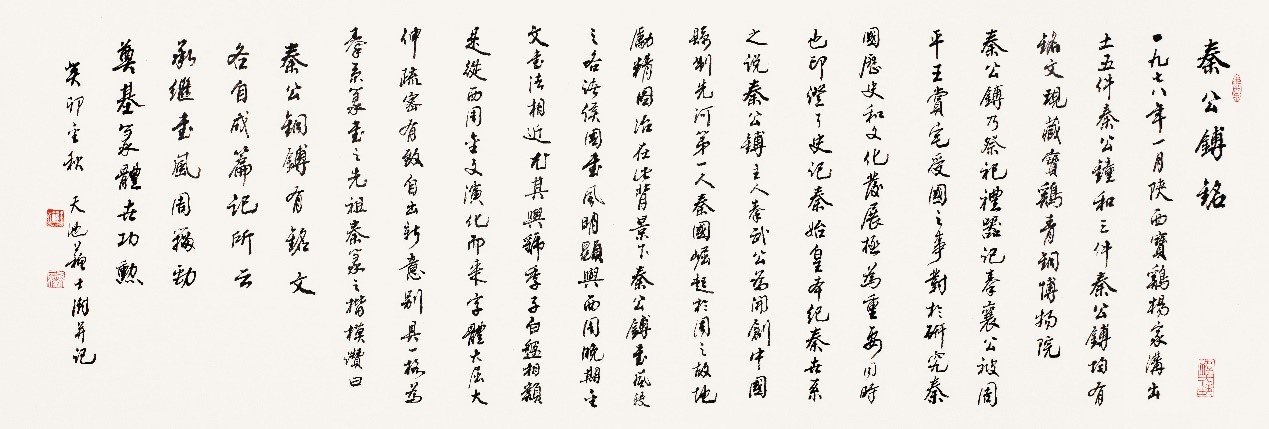 秦公鎛銘
一九七八年一月陝西寶鷄楊家溝出
土五件秦公鐘和三件秦公鎛均有
銘文現藏寶鷄青銅博物院
秦公鎛乃祭祀禮器記秦襄公被周
平王賞宅受國之事對於研究秦
國歷史和文化發展極為重要同時
也印證了史記秦始皇本紀秦世系
之說秦公鎛主人秦武公為開創中國
縣制先河第一人秦國崛起於周之故地
勵精圖治在此背景下秦公鎛書風較
之各諸侯國書風明顯與西周晚期金
文書法相近尤其與虢季子白盤相類
是從西周金文演化而來字體大屈大
伸疏密有致自出新意別具一格為
秦系篆書之先祖秦篆之楷模贊曰
秦公銅鎛有銘文
各自成篇記所云
承繼書風周獝勁
奠基篆體世功勲
癸卯金秋 天池蘇士澍并記